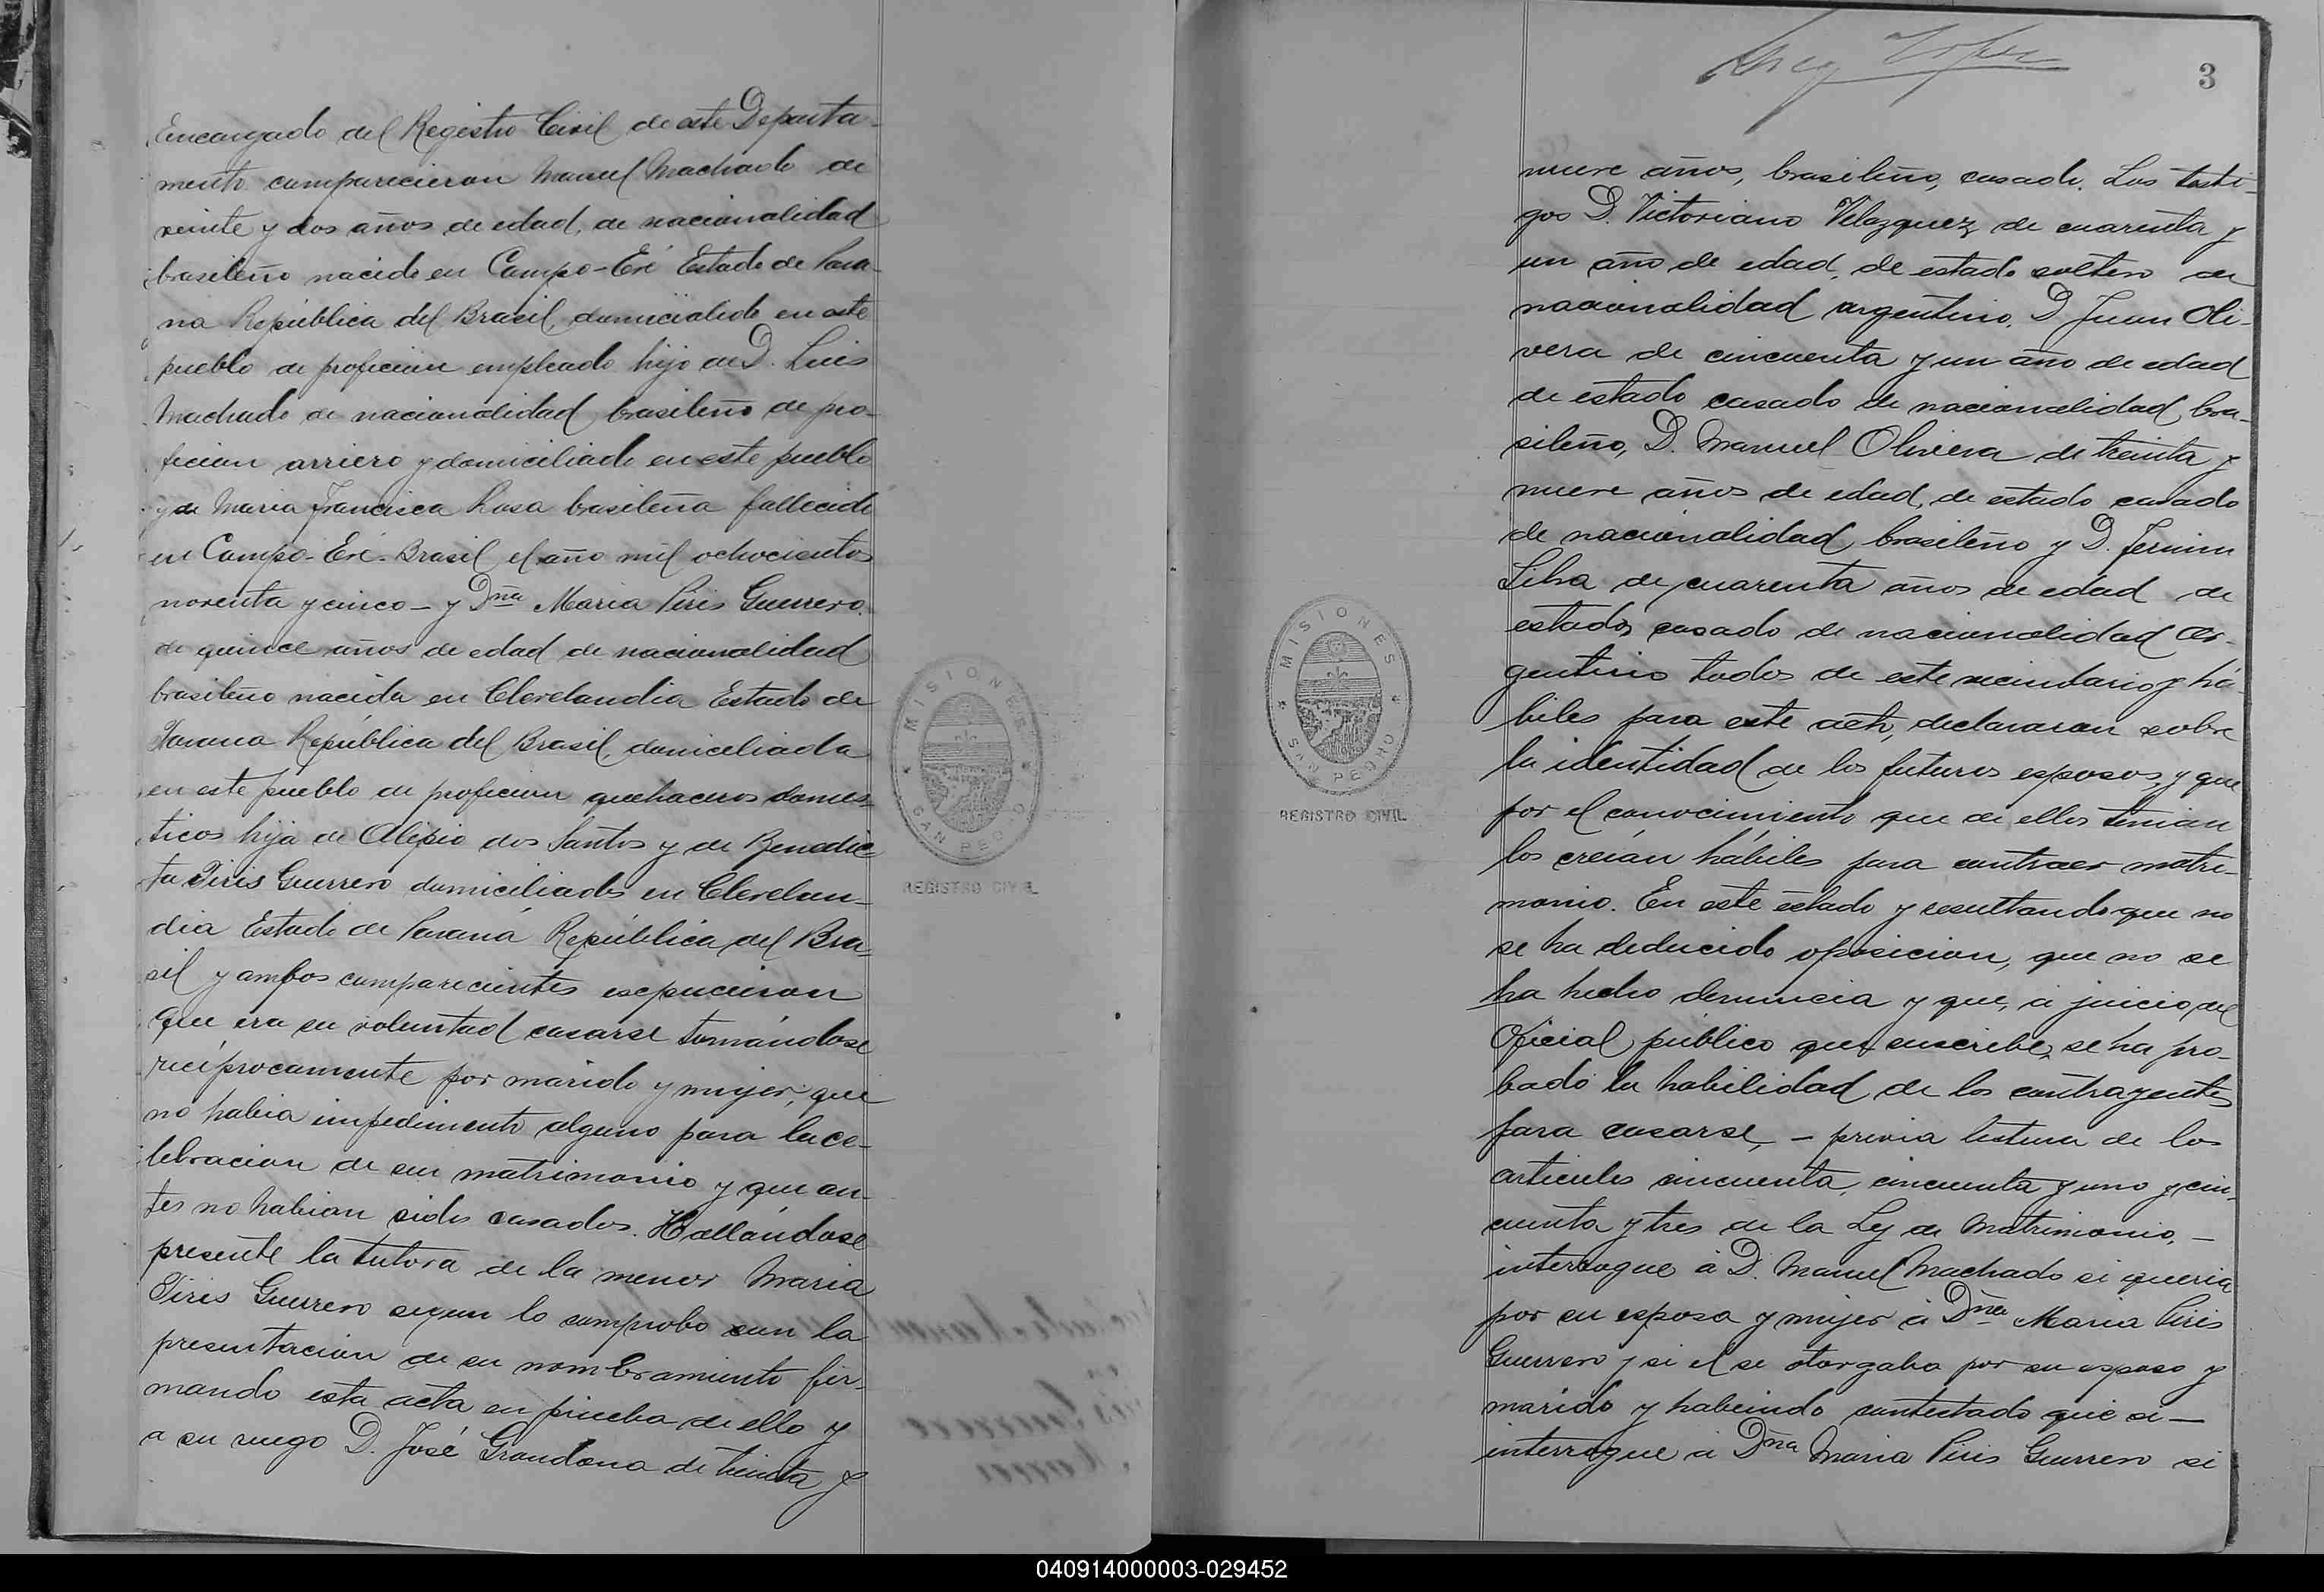 Encargado del Registro Civil de este Departa-
mento comparecieron Manuel Machado de
veinte y dos años de edad, de nacionalidad
brasileño nacido en Campo-Eré Estado de Para-
na República del Brasil, domicialido en este
pueblo de profecion empleado hijo de D. Luis
Machado de nacionalidad brasileño de pro-
fecion arriero y domiciliado en este pueblo
y de Maria Francisca Rosa brasileña fallecida
en Campo-Eré-Brasil el año mil ochocientos
noventa y cinco - y Dña Maria Piris Guerrero
de quince años de edad de nacionalidad
brasileño nacida en Clevelandia Estado de
Parana República del Brasil, domiciliada
en este pueblo de profecion quehaceros domes-
ticos hija de Alipio dos Santos y de Benedic-
ta Piris Guerrero domiciliados en Clevelan-
dia Estado de Paraná República del Bra-
sil y ambos comparecientes
que era su voluntad casarse tomándose
recíprocamente por marido y mujer, que
no habia impedimento alguno para la ce-
lebracion de su matrimonio y que an-
tes no habian sido casados. Hallándose
presente la tutora de la menor Maria
Piris Guerrero segun lo comprobo con la
presentacion de su nombramiento fir-
mando esta acta en prueba de ello y
a su ruego D. José Grandona de treinta y
MISIONES
SAN PEDRO
REGISTRO CIVIL
3
nueve años, brasileño, casado. Los testi-
gos D. Victoriano Velazquez de cuarenta y
un año de edad, de estado soltero de
nacionalidad argentino, D Juan Oli-
vera de cincuenta y un año de edad
de estado casado de nacionalidad bra-
sileño, D. Manuel Olivera de treinta y
nueve años de edad, de estado casado
de nacionalidad brasileño y D. Fermin
Silva de cuarenta años de edad de
estado casado de nacionalidad ar-
gentino todos de este vecindario y há-
biles para este acto, declararan sobre
la identidad de los futuros esposos, y que
por el conocimiento que de ellos tenian
los creían hábiles para contraer matri-
monio. En este estado y resultando que no
se ha deducido oposicion, que no se
ha hecho denuncia y que, á juicio del
Oficial público que suscribe, se ha pro-
bado la habilidad de los contrayentes
para casarse, - previa lectura de los
articulos cincuenta, cincuenta y uno y cin-
cuenta y tres de la Ley de Matrimonio, -
interrogue á D. Manuel Machado si queria
por su esposa y mujer á Dña Maria Piris
Guerrero y si el se otorgaba por su esposo y
marido y habiendo contestado que si -
interrogue á Dña Maria Piris Guerrero si
MISIONES
SAN PEDRO
REGISTRO CIVIL
040914000003-029452